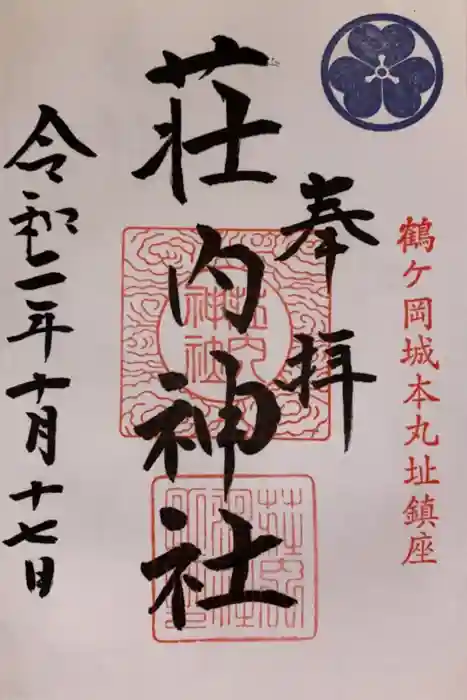 鶴ケ岡城本丸址鎮座
奉拝
荘内神社
荘内神社
令和二年十月十七日